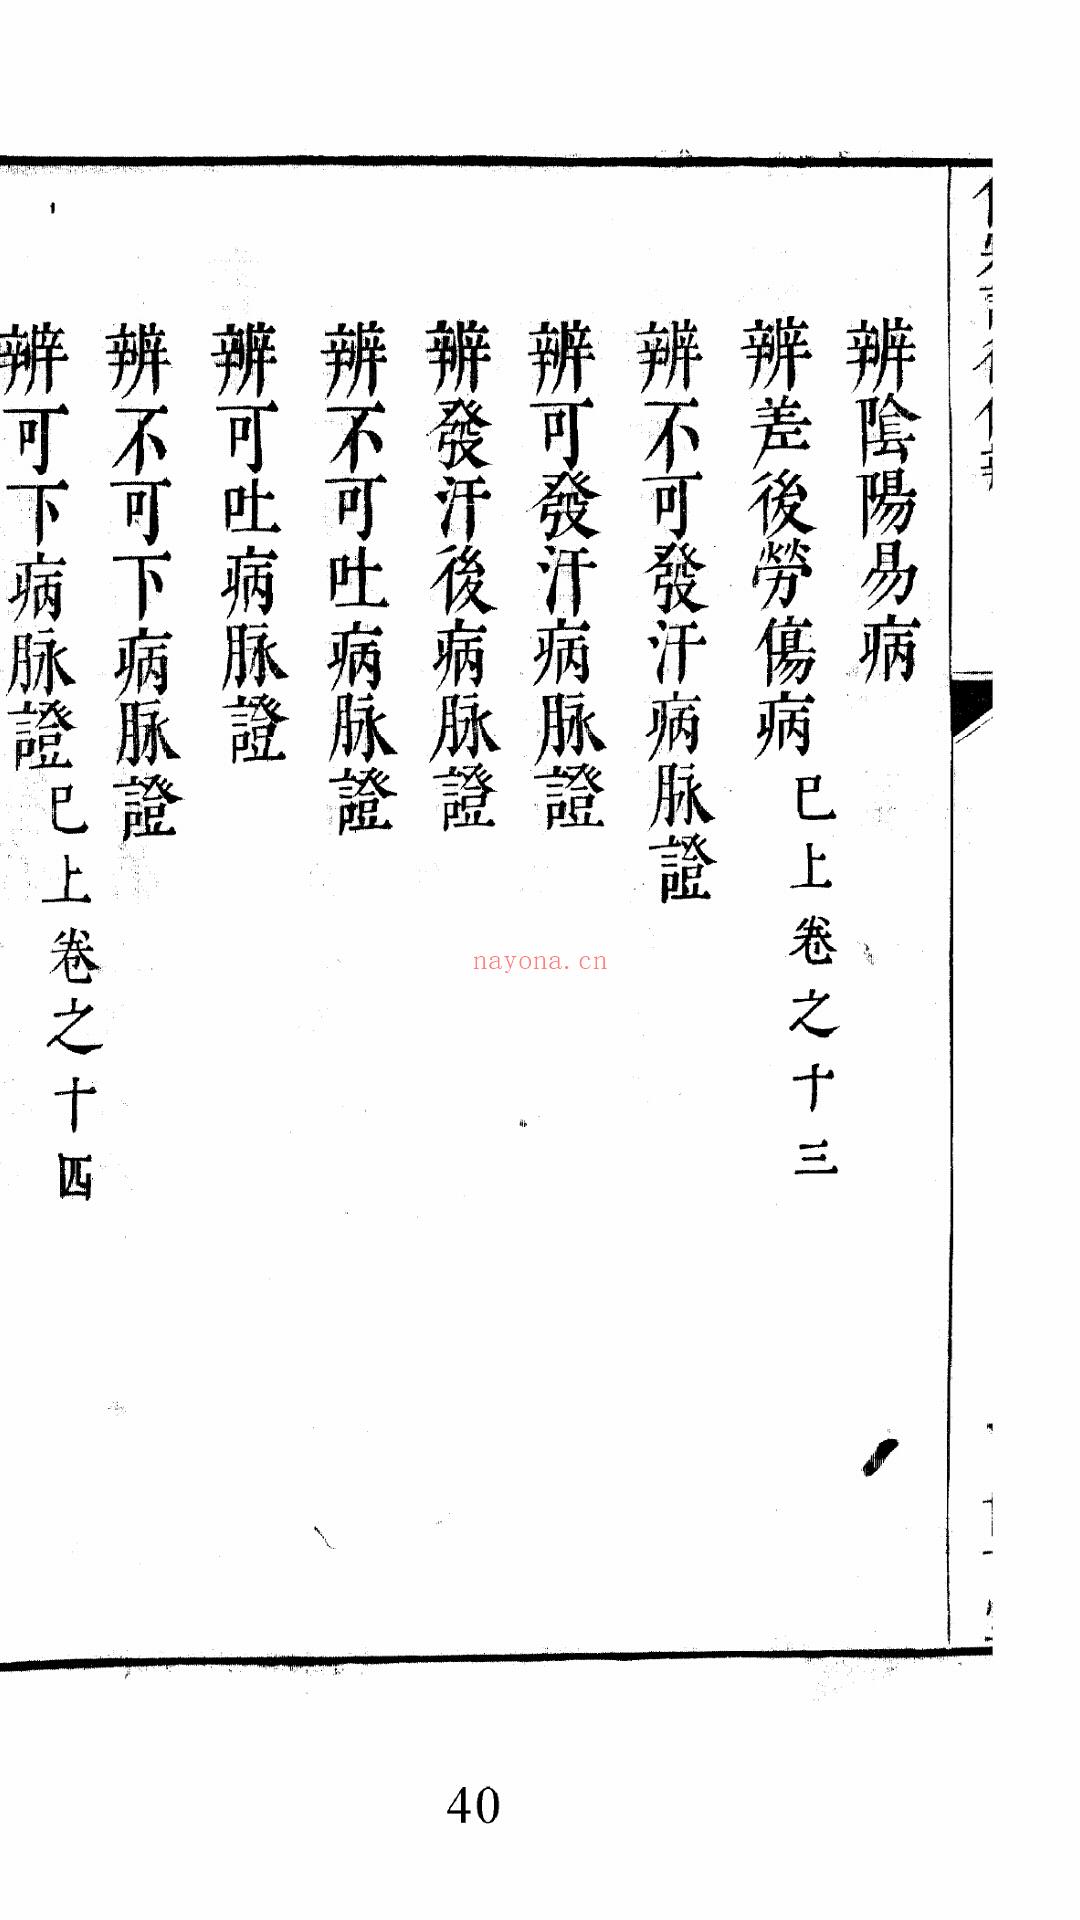 辨陰陽易病
辨差後勞傷病 已上卷之十三
辨不可發汗病脉證
辨可發汗病脉證
辨發汗後病脉證
辨不可吐病脉證
辨可吐病脉證
辨不可下病脉證
辨可下病脉證 已上卷之十四
nayona.cn
40